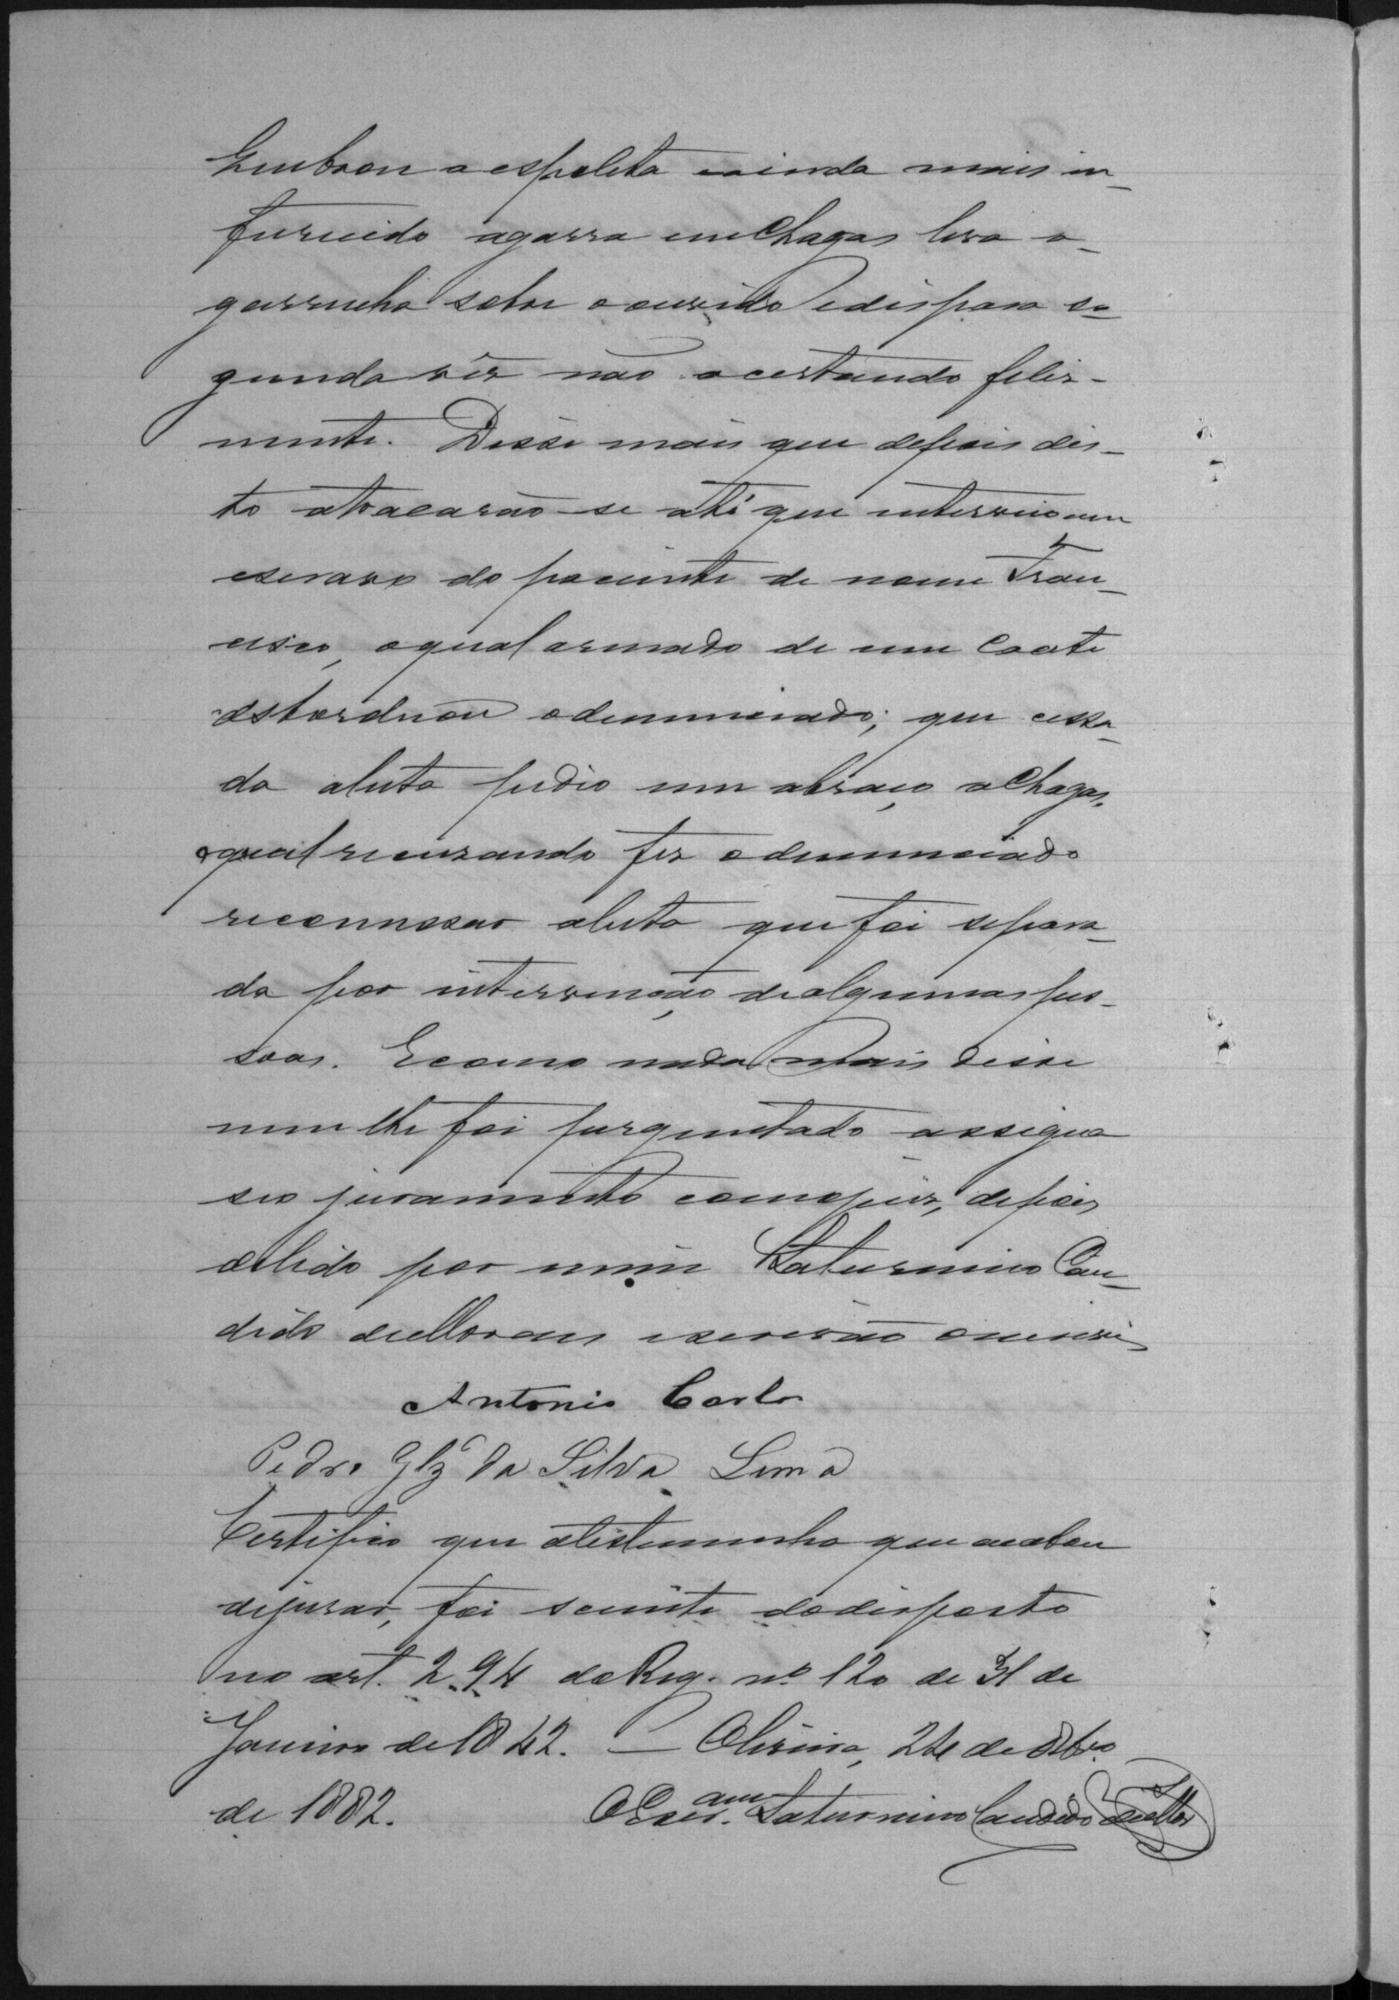 quebrou a espoleta e ainda mais in-
furecido agarra em Chagas leva a
garrucha sobre o ouvido e dispara se-
gunda vez não acertando feliz-
mente. Disse mais que depois dis-
to atracarão-se até que interveio um
escravo do paciente de nome Fran-
cisco, o qual armado de um cacete
desbordoou o denunciado; que cessa-
da a luta pedio um abraço a Chagas,
o qual recusando fez o denunciado
recommesar a luta que foi separa-
da por intervenção de algumas pes-
soas. E como nada mais disse
nem lhe foi perguntado assigna
seo juramento com o juiz, depois
de lido por mim Saturnino Can-
dido de Moraes escrivão o escrevi
Antonio Carlos
Pedro Glz da Silva Lima
Certifico que a testemunha que acabou
de jurar, foi sciente do disposto
no art. 294 do Reg. nº 120 de 31 de
Janeiro de 1842. — 24 de
de 1882. O Escr.am Saturnino Candido de Mor